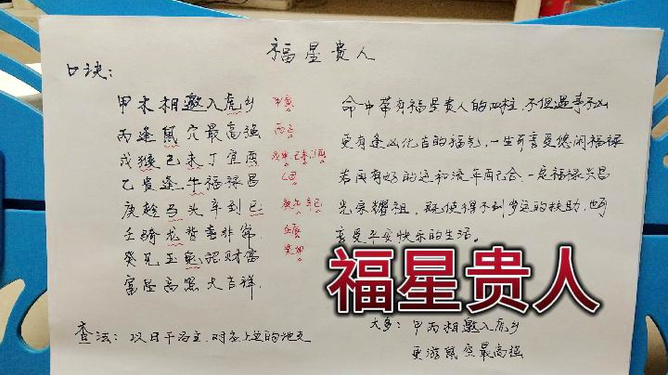 福星贵人
口诀:
甲木相邀入虎乡
丙逢鼠穴最高强
戊猴己未丁宜酉
乙贵逢牛福禄昌
庚趁马头辛到巳
壬骑龙背喜非常
癸见玉兔说财富
富 高照大吉祥
甲寅
命中带有福星贵人的四柱,不但遇事不凶
更有逢凶化吉的福气,一生可享受悠闲福禄
若再有好的运和流年配合,一定福禄兴昌
光宗耀祖,疑使得不到岁运的扶助,也可
享受平安快乐的生活。
福星贵人
查法:以日干为主,对名上 的地支
大多:甲丙相邀入虎乡
更游鼠穴最高强